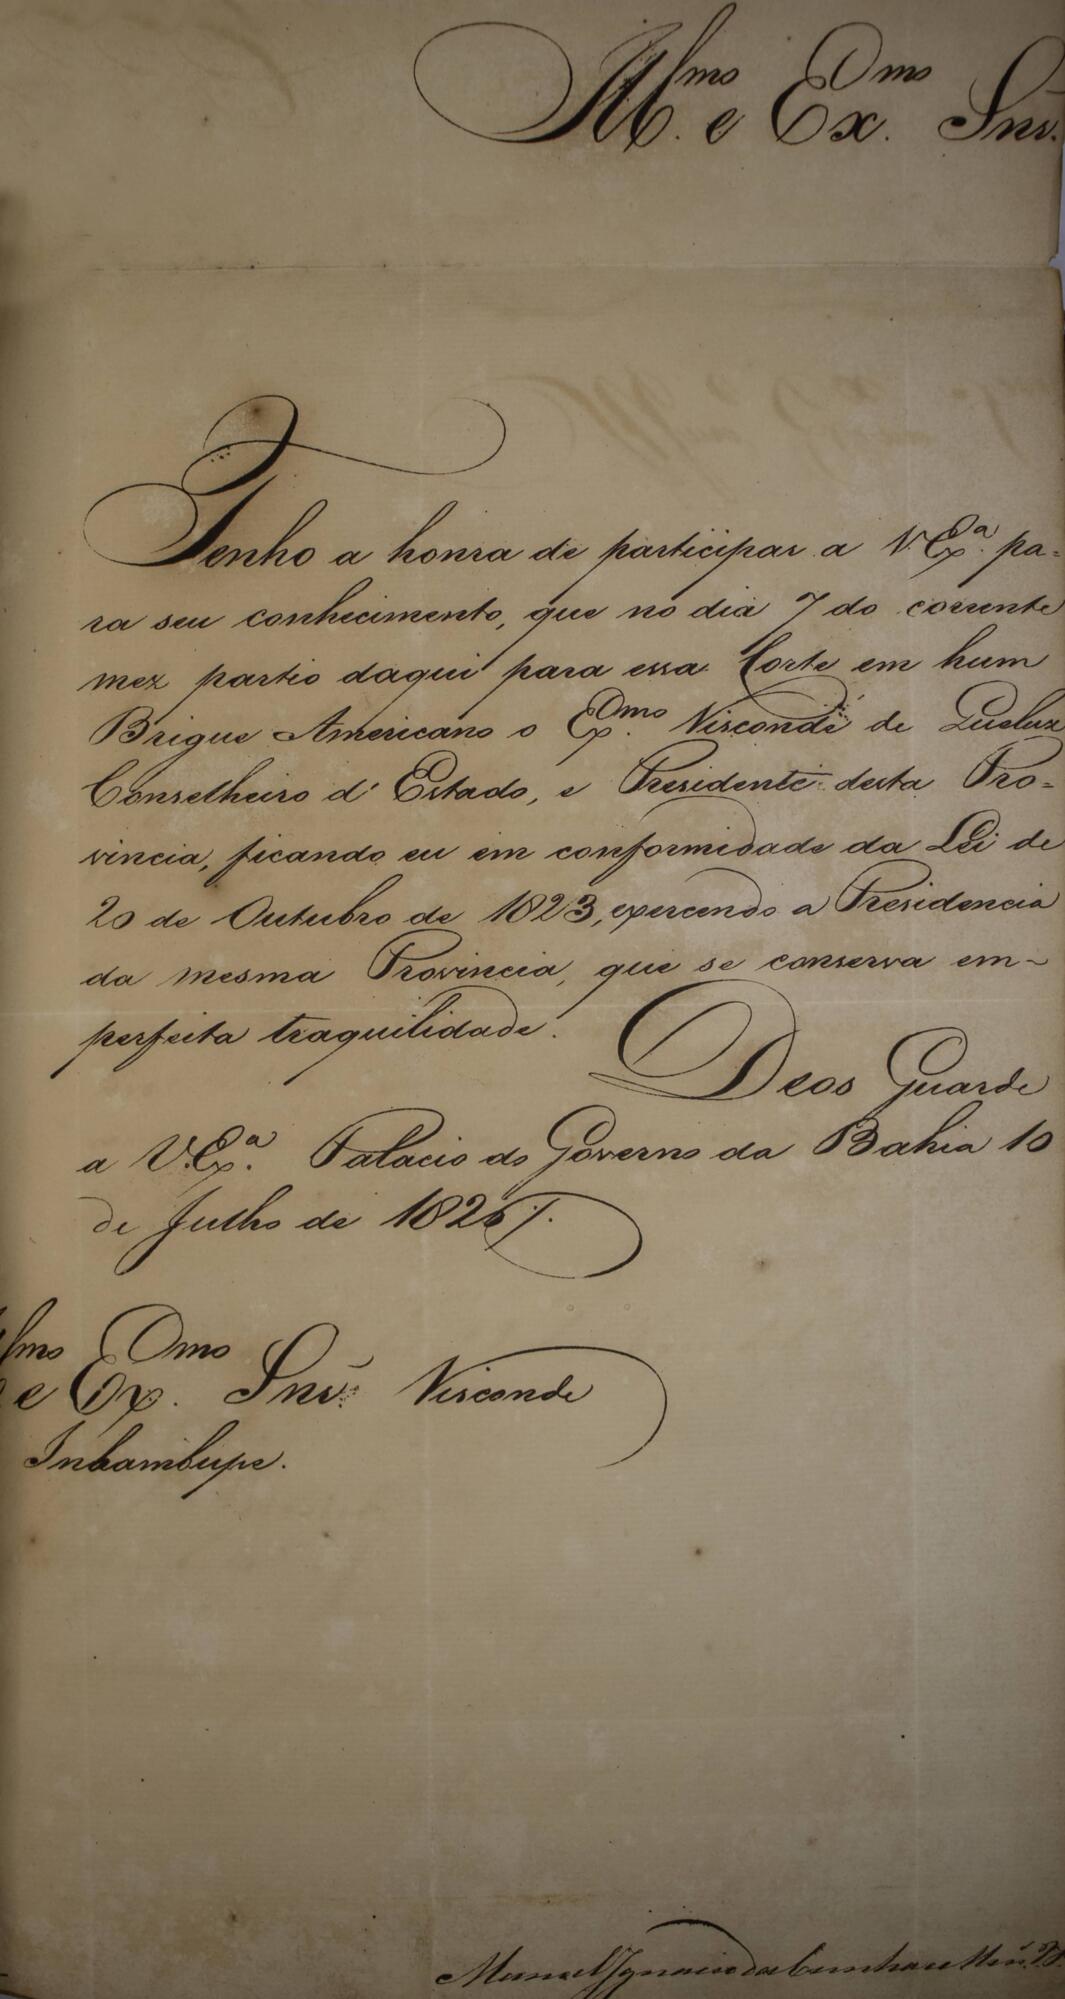 Ill.mo e Ex.mo Snr.
Tenho a honra de participar a V. Ex.a pa-
ra seu conhecimento, que no dia 7 do corrente
mez partio daqui para essa Corte em hum
Brigue Americano o Ex.mo Visconde de Queluz
Conselheiro d'Estado, e Presidente desta Pro-
vincia, ficando eu em conformidade da Lei de
20 de Outubro de 1823, exercendo a Presidencia
da mesma Provincia, que se conserva em
perfeita traquilidade. Deos Guarde
a V. Ex.a Palacio do Governo da Bahia 10
de Julho de 1827.
Ill.mo e Ex.mo Snr. Visconde
Inhambupe.
Manoel Ignacio da Cunha e Men.